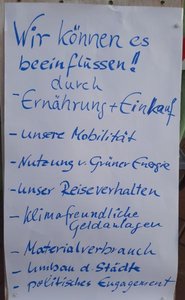 Wir können es
beeinflussen!!
durch
- Ernährung + Einkauf
- unsere Mobilität
- Nutzung v. Grüner Energie
- Unser Reiseverhalten
- Klimafreundliche
Geldanlagen
- Materialverbrauch
- Umbau d. Städte
- politisches Engagement